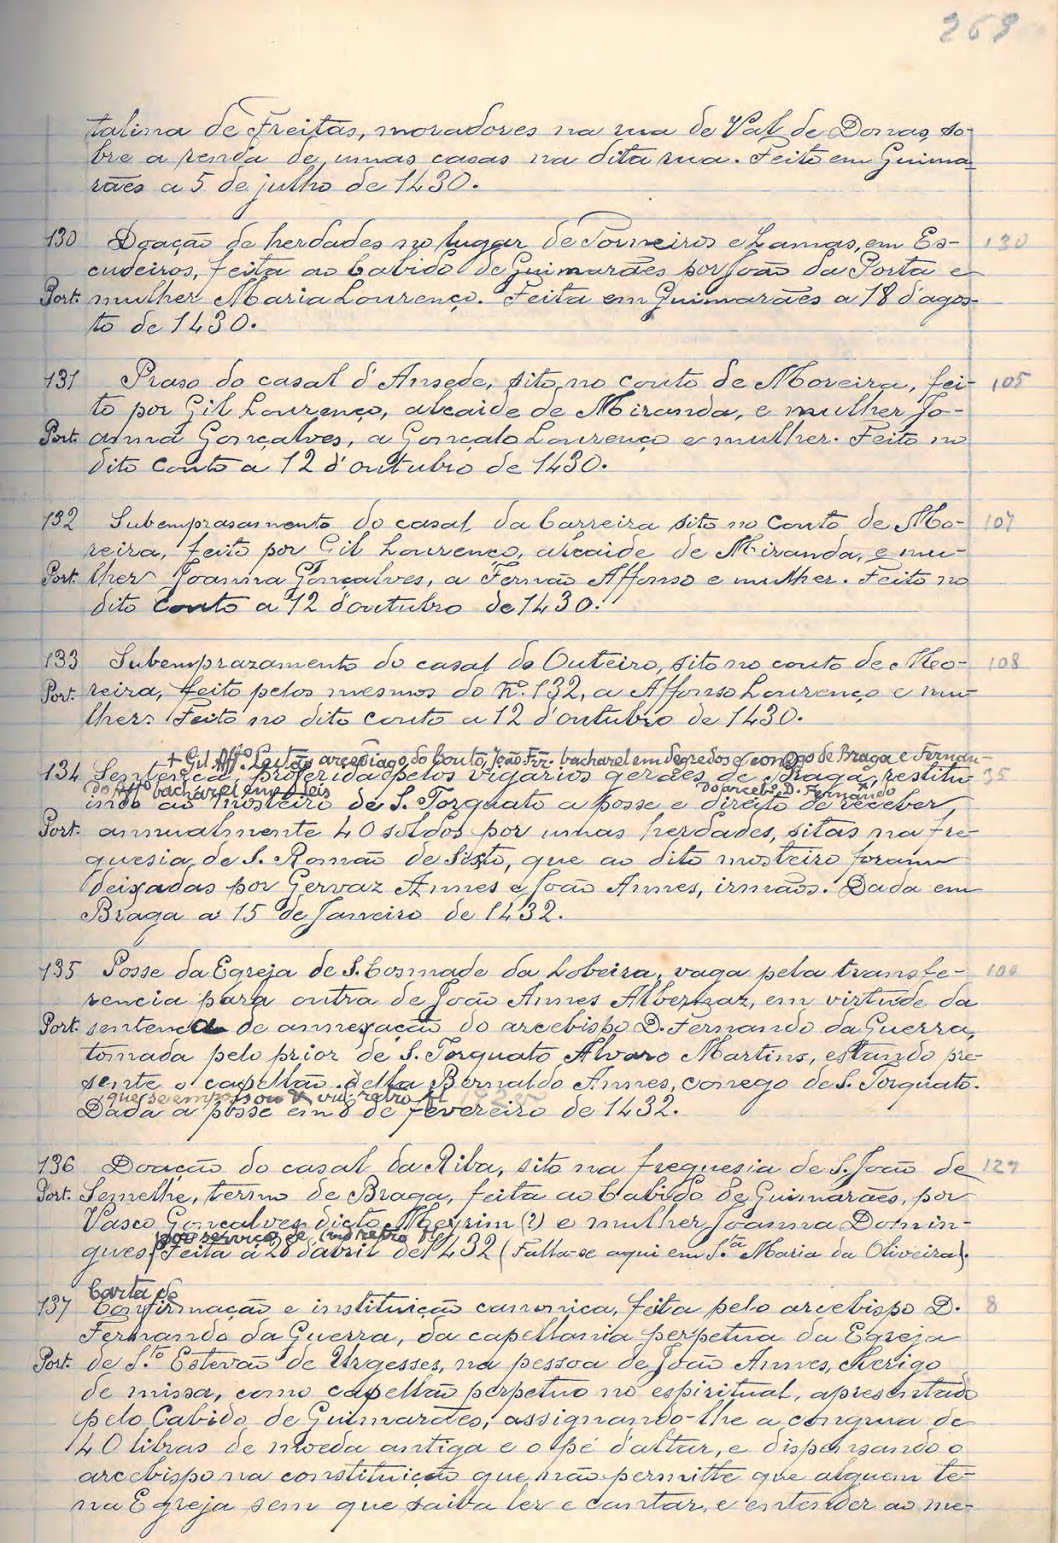 263
talina de Freitas, moradores na rua de Val de Donas, so-
bre a renda de umas casas na dita rua. Feito em Guima-
rães a 5 de julho de 1430.
130 Doação de herdades no lugar de Porneiros e Lamas, em Es- 130
cudeiros, feita ao Cabido de Guimarães por João da Porta e
Port. mulher Maria Lourenço. Feita em Guimarães a 18 d'agos-
to de 1430.
131 Praso do casal d'Ansede, sito no couto de Moreira, fei- 105
to por Gil Lourenço, alcaide de Miranda, e mulher Jo-
Port. anna Gonçalves, a Gonçalo Lourenço e mulher. Feito no
dito couto a 12 d'outubro de 1430.
132 Subemprasamento do casal da Carreira sito no couto de Mo- 107
reira, feito por Gil Lourenço, alcaide de Miranda, e mu-
Port. lher Joanna Gonçalves, a Fernão Affonso e mulher. Feito no
dito couto a 12 d'outubro de 1430.
133 Subemprazamento do casal do Outeiro, sito no couto de Mo- 108
Port. reira, feito pelos mesmos do nº. 132, a Affonso Lourenço e mu-
lher. Feito no dito couto a 12 d'outubro de 1430.
+ Gil Affº. Leitão arcediago do Couto, João Frz. bacharel em degredos e conego de Braga e Fernan-
134 Sentença, proferida pelos vigarios geraes de Braga, restitu- 35
do Affº bacharel em leis do arcebº. D. Fernando
indo ao mosteiro de S. Torquato a posse e direito de receber,
Port. annualmente 40 soldos por umas herdades, sitas na fre-
guesia de S. Romão de Sisto, que ao dito mosteiro foram
deixadas por Gervaz Annes e João Annes, irmãos. Dada em
Braga a 15 de Janeiro de 1432.
135 Posse da Egreja de S. Cosmade da Lobeira, vaga pela transfe- 100
rencia para outra de João Annes Albernaz, em virtude da
Port. sentença de annexação do arcebispo D. Fernando da Guerra,
tomada pelo prior de S. Torquato Alvaro Martins, estando pre-
sente o capellão della Bernaldo Annes, conego de S. Torquato.
que se empossou
Dada a posse em 8 de fevereiro de 1432.
136 Doação do casal da Riba, sito na freguesia de S. João de 129
Port. Semelhe, termo de Braga, feita ao Cabido de Guimarães, por
Vasco Gonçalves dicto Meyrim (?) e mulher Joanna Domin-
por serviço de
gues. Feita a 28 d'avril de 1432 (Falla-se aqui em S.ta Maria da Oliveira).
Carta de
137 Confirmação e instituição canonica, feita pelo arcebispo D. 8
Fernando da Guerra, da capellania perpetua da Egreja
Port. de S.to Estevão de Urgesses, na pessoa de João Annes, clerigo
de missa, como capellão perpetuo no espiritual, apresentado
pelo Cabido de Guimarães, assignando-lhe a congrua de
40 libras de moeda antiga e o pé d'altar, e dispensando o
arcebispo na constituição que não permitte que alguem te-
nha Egreja sem que saiba ler e cantar, e entender ao me-